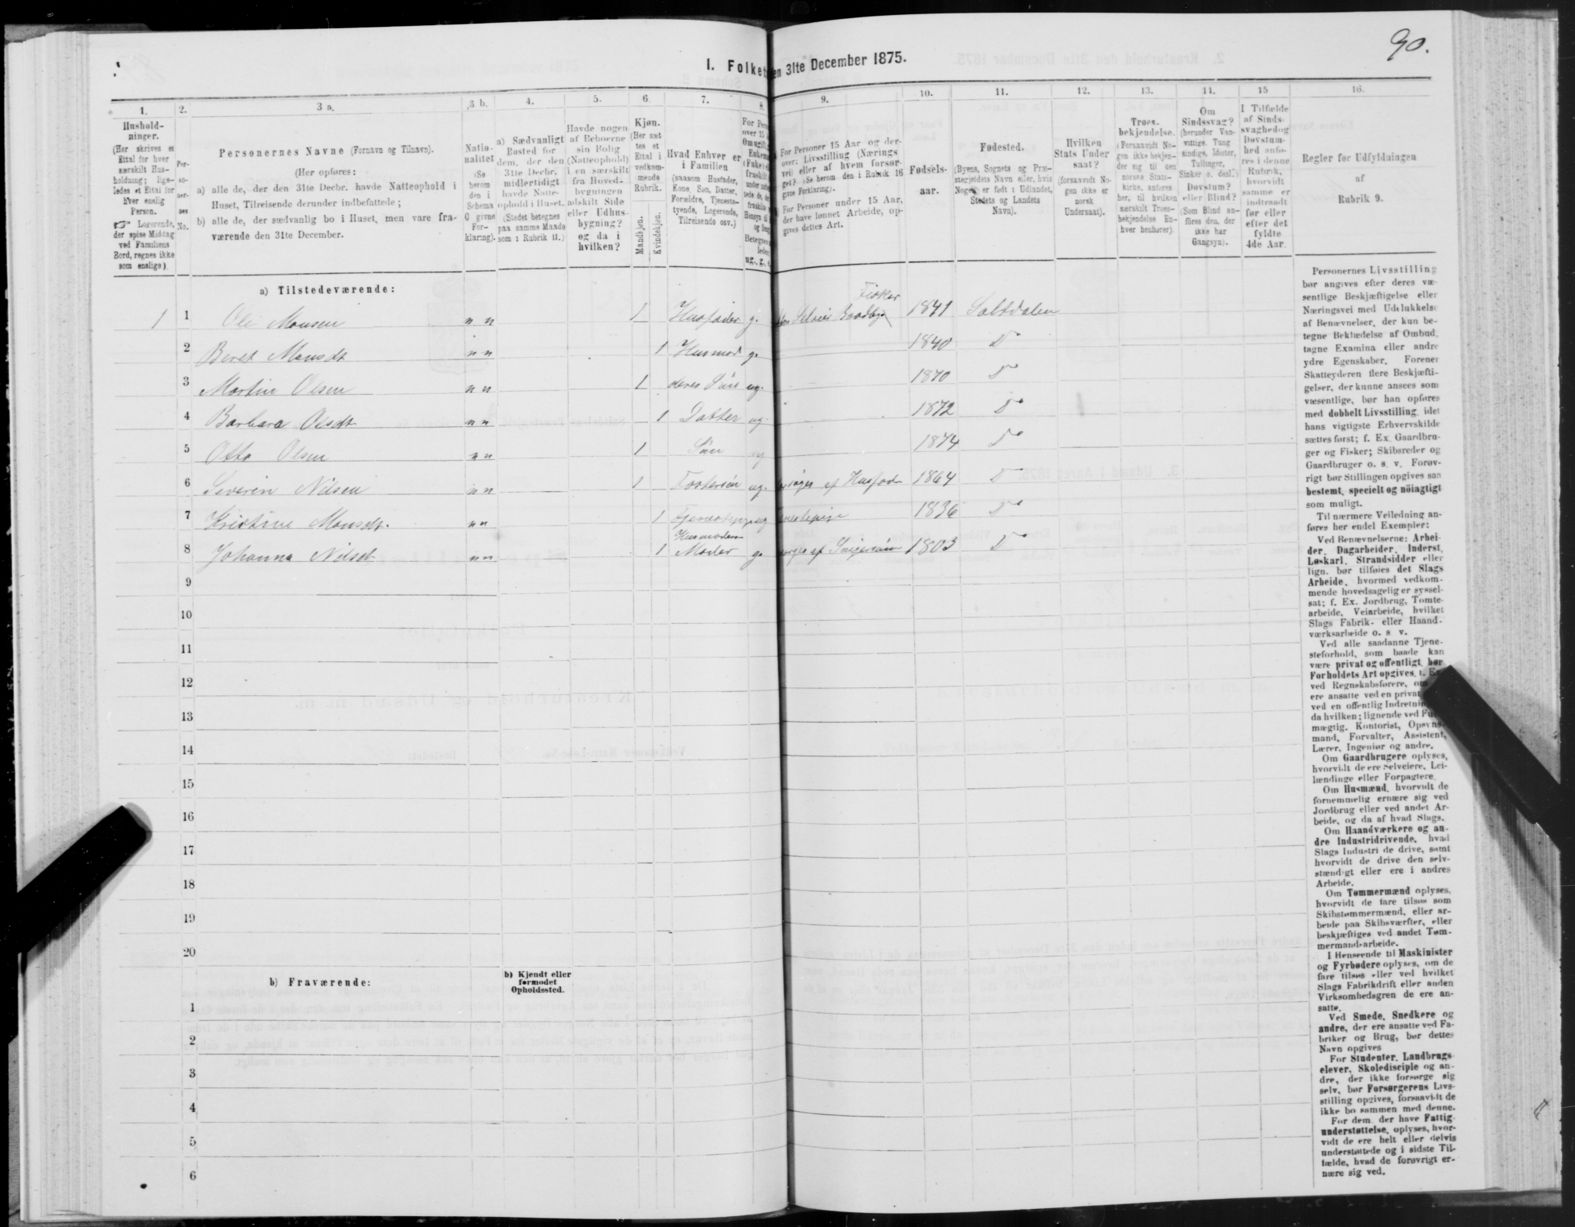 90.
I. Folket en 31te December 1875.
1.
Hushold-
ninger.
(Her skrives et
Ettal for hver
særskilt Hus-
holdning; lige-
ledes et Ettal for
hver enslig
Person.
☞ Logerende,
der spise Middag
ved Familiens
Bord, regnes ikke
som enslige)
2.
Per-
so-
ner-
nes
No.
3 a.
Personernes Navne (Fornavn og Tilnavn).
(Her opføres:
a) alle de, der den 31te Decbr. havde Natteophold i
Huset, Tilreisende derunder indbefattede;
b) alle de, der sædvanlig bo i Huset, men vare fra-
værende den 31te December.
3 b.
Natio-
nalitet
(Se
herom
den i
Schema
O givne
For-
klaring).
4.
a) Sædvanligt
Bosted for
dem, der den
31te Decbr.
midlertidigt
havde Natte-
ophold i Huset.
(Stedet betegnes
paa samme Maade
som i Rubrik 11.)
5.
Havde nogen
af Beboerne
sin Bolig
(Natteophold)
i en særskilt
fra Hoved-
bygningen
adskilt Side
eller Udhus-
bygning?
og da i
hvilken?
6.
Kjøn.
(Her sæt
tes et
Ettal i
vedkom-
mende
Rubrik.
Mandkjøn.
Kvindekjøn.
7.
Hvad Enhver er
i Familien
(saasom Husfader,
Kone, Søn, Datter,
Forældre, Tjeneste-
tyende, Logerende,
Tilreisende osv.)
8.
9.
For Personer 15 Aar og der-
over: Livsstilling (Nærings
vei) eller af hvem forsør-
get? (Se herom den i Rubrik 16
givne Forklaring).
For Personer under 15 Aar,
der have lønnet Arbeide, op-
gives dettes Art.
10.
Fødsels-
aar.
11.
Fødested.
(Byens, Sognets og Præ-
stegjeldets Navn eller, hvis
Nogen er født i Udlandet,
Stedets og Landets
Navn).
12.
Hvilken
Stats Under
saat?
(forsaavidt No-
gen ikke er
norsk
Undersaat).
13.
Troes-
bekjendelse.
(Forsaavidt No-
gen ikke bekjen-
der sig til den
norske Stats-
kirke, anføres
her, til hvilken
særskilt Troes-
bekjendelse En-
hver henhører).
14.
Om
Sindssvag?
(herunder Van-
vittige, Tung
sindige, Idioter,
Tullinger,
Sinker o. desl.)
Døvstum?
eller Blind?
(Som Blind an-
føres den, der
ikke har
Gangsyn).
15
I Tilfælde
af Sinds-
svaghedog
Døvstum-
hed anfø-
res i denne
Rubrik,
hvorvidt
samme er
indtraadt
før eller
efter det
fyldte
4de Aar.
16.
Regler for Udfyldningen
af
Rubrik 9.
a) Tilstedeværende:
1 1 Ole Monsen n n 1 Husfader g. Fisker Selveier Gaardbr 1841 Saltdalen
2 Beret Monsdt n n 1 Husmod g. 1840 Do
3 Martin Olsen n n 1 deres Søn ug. 1870 Do
4 Barbara Olsdt n n 1 Datter ug. 1872 Do
5 Otto Olsen n n 1 Søn ug 1874 Do
6 Severin Nilsen n n 1 Fostersøn ug. af Husfader 1864 Do
7 Kristine Monsdt. n n 1 ug 1836 Do
8 Johanna Nilsdt n n 1 Husmoders Moder g. af 1803 Do
9
10
11
12
13
14
15
16
17
18
19
20
b) Fraværende:
b) Kjendt eller
formodet
Opholdssted.
1
2
3
4
5
6
Personernes Livsstilling
bør angives efter deres væ-
sentlige Beskjæftigelse eller
Næringsvei med Udelukkelse
af Benævnelser, der kun be-
tegne Beklædelse af Ombud,
tagne Examina eller andre
ydre Egenskaber. Forener
Skatteyderen flere Beskjæfti-
gelser, der kunne ansees som
væsentlige, bør han opføres
med dobbelt Livsstilling, idet
hans vigtigste Erhvervskilde
sættes først; f. Ex. Gaardbru-
ger og Fisker; Skibsreder og
Gaardbruger o. s. v. Forøv-
rigt bør Stillingen opgives saa
bestemt, specielt og nøiagtigt
som muligt.
Til nærmere Veiledning an-
føres her endel Exempler:
Ved Benævnelserne: Arbei-
der, Dagarbeider, Inderst,
Løskarl, Strandsidder eller
lign. bør tilføies det Slags
Arbeide, hvormed vedkom-
mende hovedsagelig er syssel-
sat; f. Ex. Jordbrug, Tomte-
arbeide, Veiarbeide, hvilket
Slags Fabrik- eller Haand-
værksarbeide o. s. v.
Ved alle saadanne Tjene-
steforhold, som baade kan
være privat og offentligt, bør
Forholdets Art opgives, f. Ex.
ved Regnskabsførere, om
ere ansatte ved en privat
ved en offentlig Indretning
da hvilken; lignende ved Ful-
mægtig, Kontorist, Opsyns-
mand, Forvalter, Assistent,
Lærer, Ingeniør og andre.
Om Gaardbrugere oplyses,
hvorvidt de ere Selveiere, Lei-
lændinge eller Forpagtere.
Om Husmænd, hvorvidt de
fornemmelig ernære sig ved
Jordbrug eller ved andet Ar-
beide, og da af hvad Slags.
Om Haandværkere og an-
dre Industridrivende, hvad
Slags Industri de drive, samt
hvorvidt de drive den selv-
stændigt eller ere i andres
Arbeide.
Om Tømmermænd oplyses,
hvorvidt de fare tilsøs som
Skibstømmermænd, eller ar-
beide paa Skibsværfter, eller
beskjæftiges ved andet Tøm-
mermandsarbeide.
I Henseende til Maskinister
og Fyrbødere oplyses, om de
fare tilsøs eller ved hvilket
Slags Fabrikdrift eller anden
Virksomhedsgren de ere an-
satte.
Ved Smede, Snedkere og
andre, der ere ansatte ved Fa-
briker og Brug, bør dettes
Navn opgives
For Studenter, Landbrugs-
elever, Skoledisciple og an-
dre, der ikke forsørge sig
selv, bør Forsørgerens Livs-
stilling opgives, forsaavidt de
ikke bo sammen med denne.
For dem, der have Fattig-
understøttelse, oplyses, hvor-
vidt de ere helt eller delvis
understøttede og i sidste Til-
fælde, hvad de forøvrigt er-
nære sig ved.